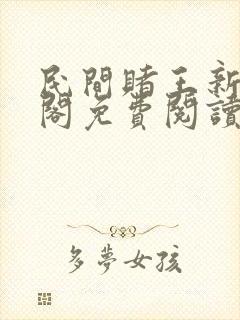 民間賭王新
閣免費閱讀
多夢女孩